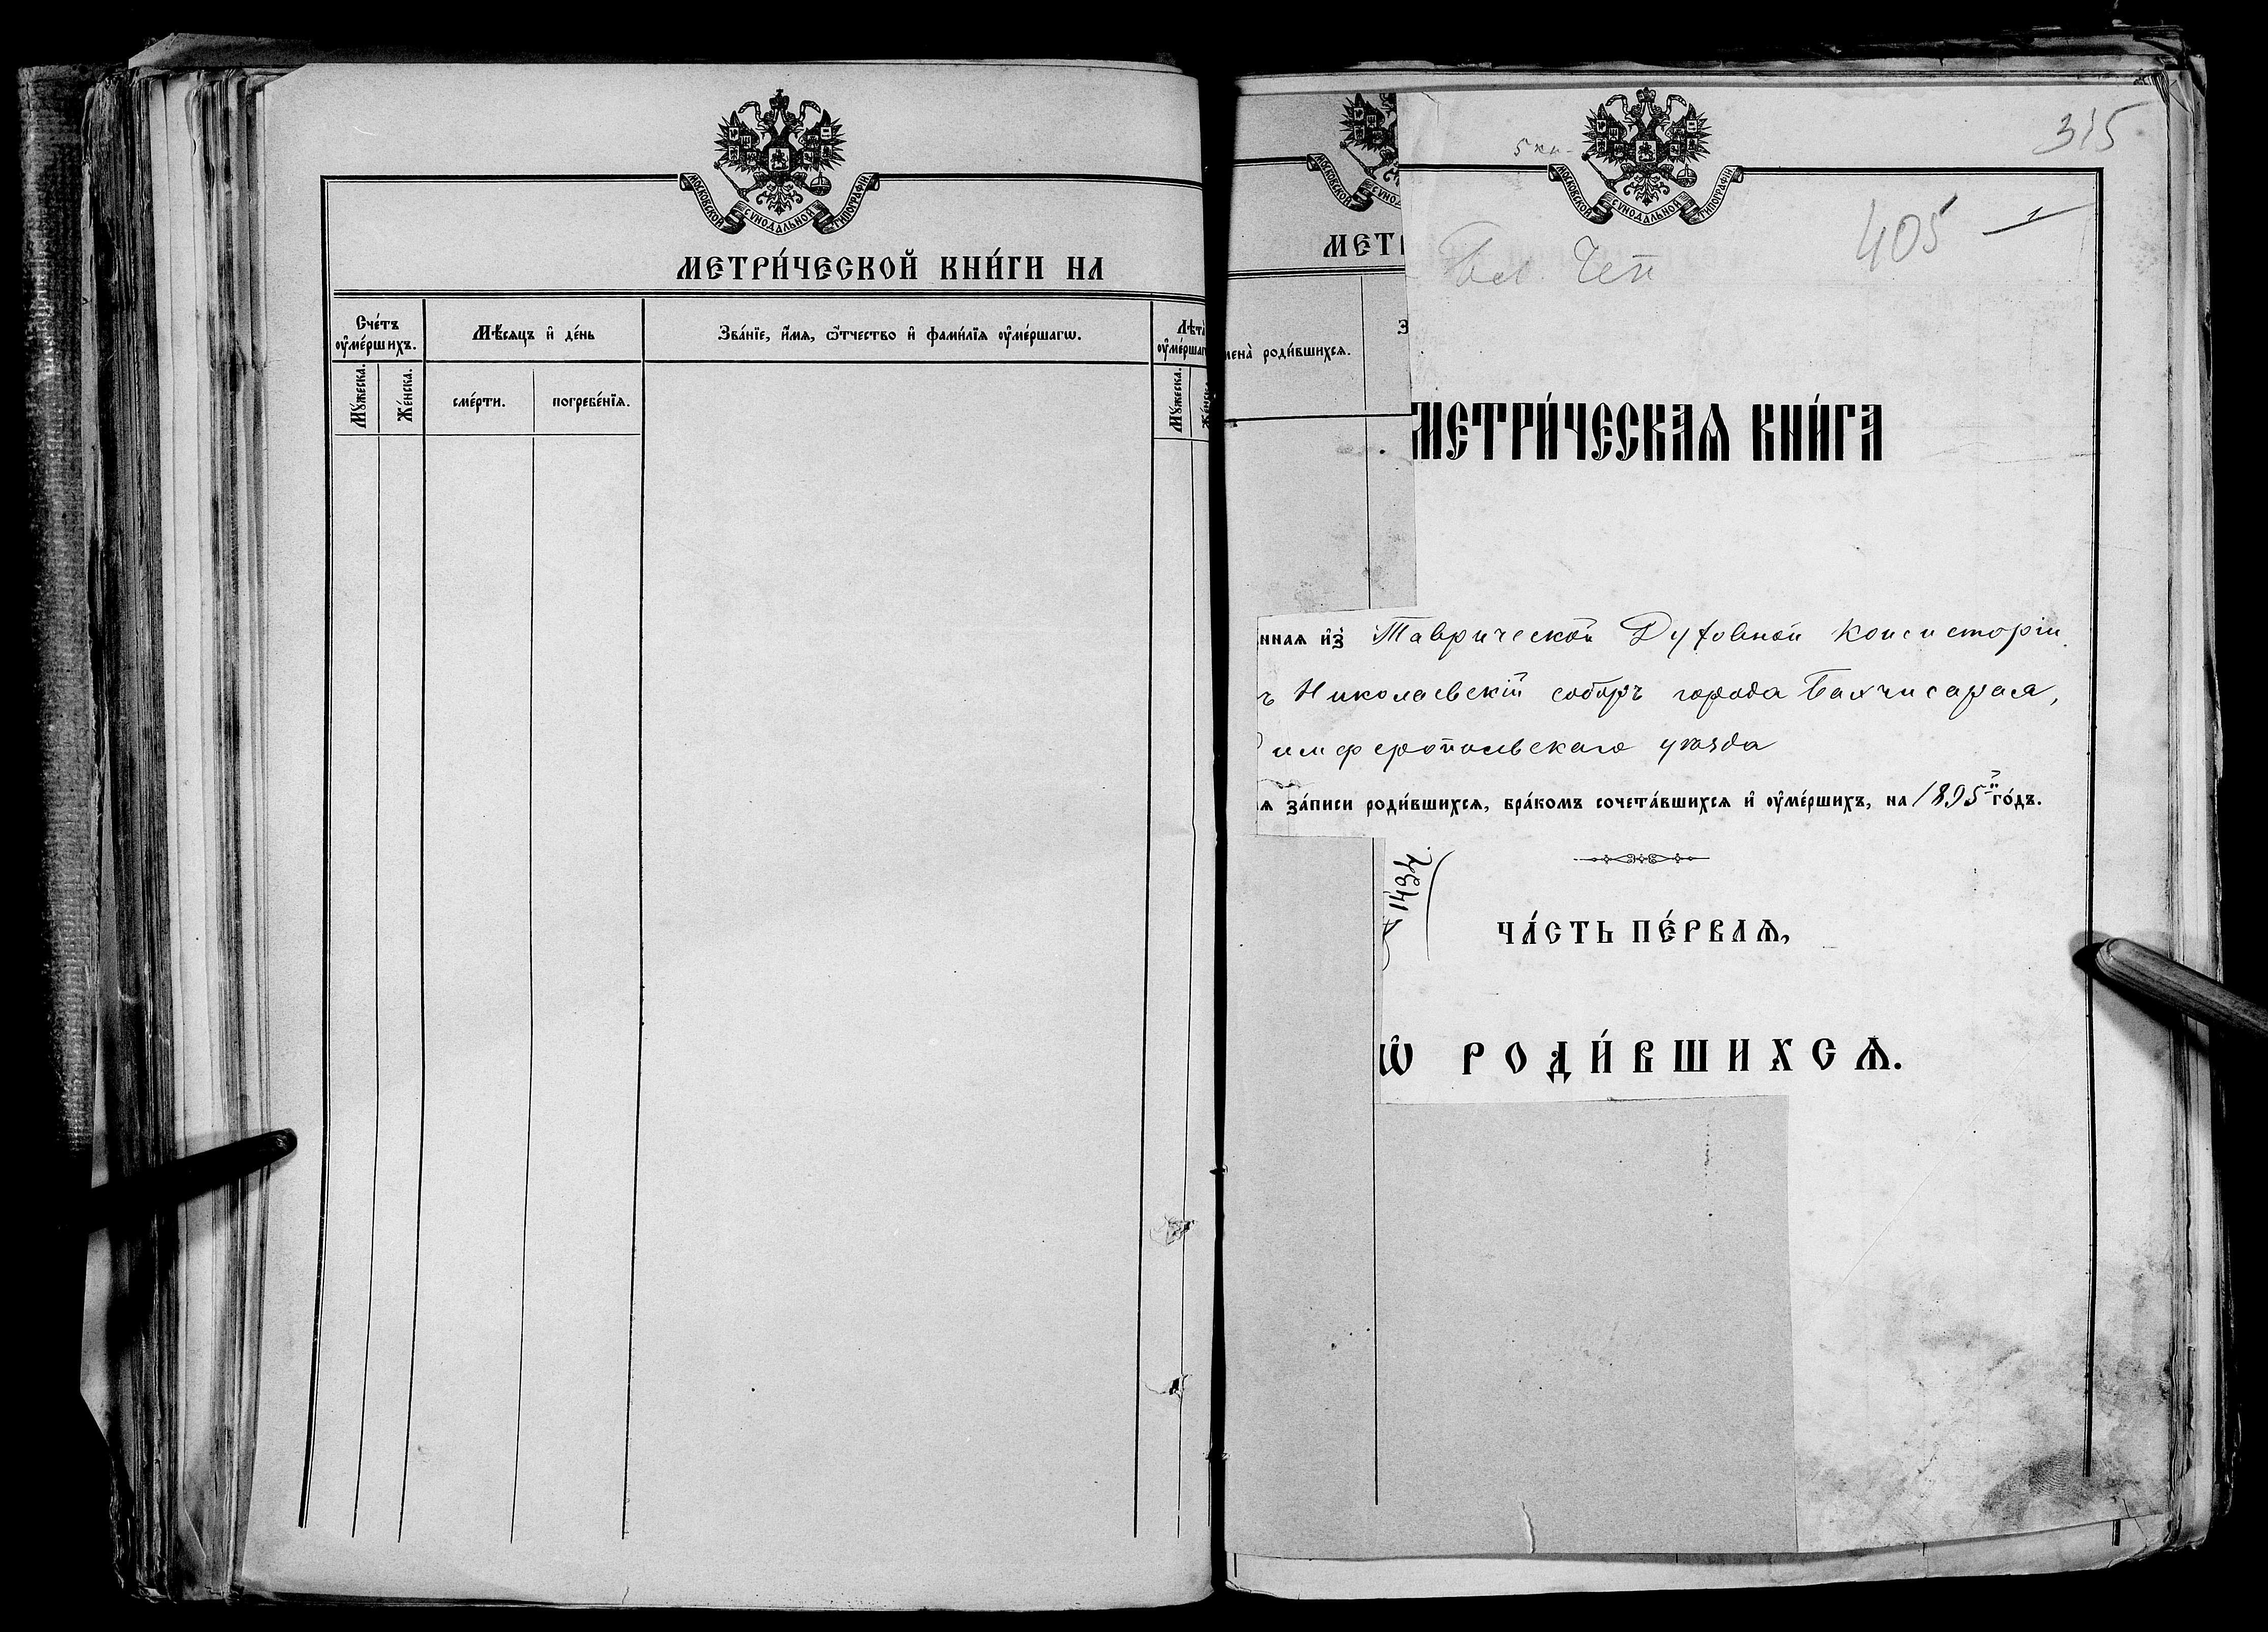 МОСКОВСКОЙ СѴНОДАЛЬНОЙ ТИПОГРАФІИ.
МЕТРИ́ЧЕСКОЙ КНИ́ГИ НА
Сче́тъ ᲂу҆ме́ршихъ.
Мѣ́сяцъ и҆ де́нь
Зва́нїе, и҆́мя, ѻ҆́тчество и҆ фами́лїя ᲂу҆ме́ршагѡ.
Лѣта
ᲂу҆ме́ршаг
Мꙋ́жеска.
Же́нска.
сме́рти.
погребе́нїя.
Мꙋ́жеска.
Же́нска
МОСКОВСКОЙ СѴНОДА
МЕТР
мена̀ роди́вшихся.
З
315
5 кн.
МОСКОВСКОЙ СѴНОДАЛЬНОЙ ТИПОГРАФІИ.
405 — 1
МЕТРИ́ЧЕСКАѦ КНИ́ГА
нная и҆з̾ Таврической Духовной Консисторіи
ъ Николаевскій соборъ города Бахчисарая,
имферопольскаго уѣзда
я за́писи роди́вшихся, бра́комъ сочета́вшихся и҆ ᲂу҆ме́ршихъ, на 1895й го́дъ.
1434
ЧА́СТЬ ПЕ́РВАѦ,
Ѡ҆ РОДИ́ВШИХСѦ.